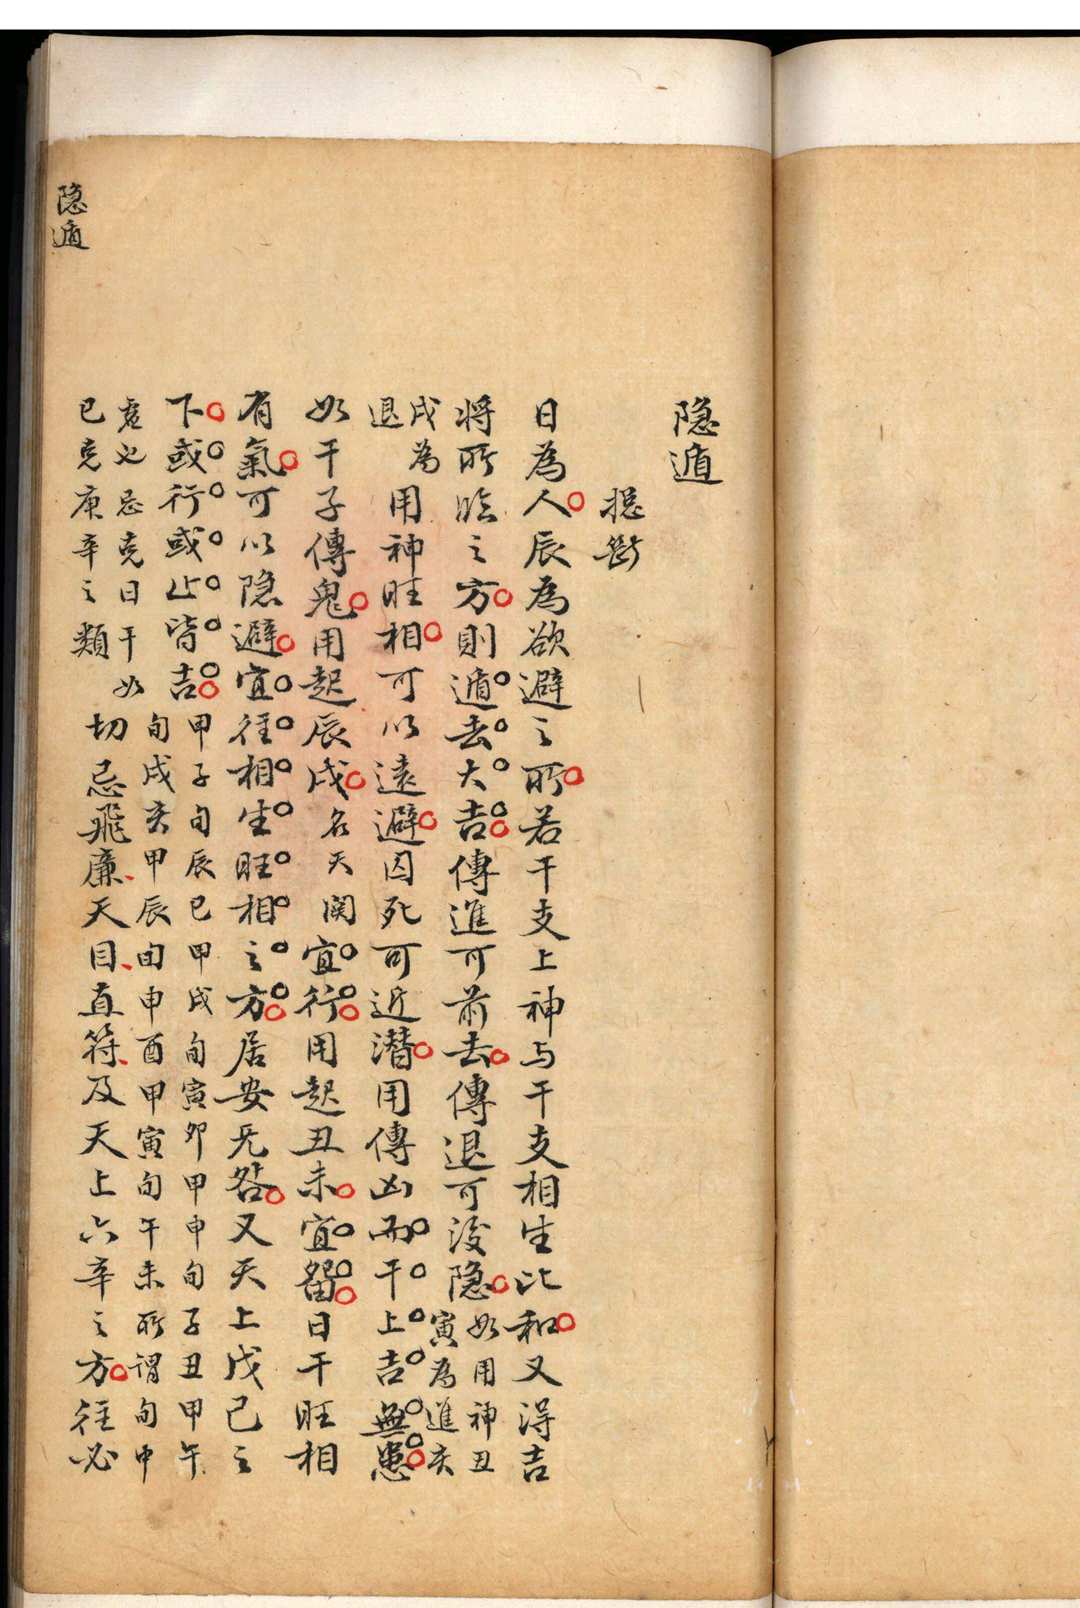 隐遁
捴断
日為人辰為欲避之所若干支上神与干支相生比和又得吉
将所临之方則遁去大吉傳進可前去傳退可没隐如用神丑寅為進亥
戌為退用神旺相可以遠避囚死可近潜用傳凶而干上吉無患
如干子傳鬼用起辰戌名天関宜行用起丑未宜留日干旺相
有氣可以隐避宜往相生旺相之方居安无咎又天上戊己之
下或行或止皆吉甲子旬辰巳甲戌旬寅卯甲申旬子丑甲午旬戌亥甲辰旬申酉甲寅旬午未所谓旬中
虚也忌克日干如巳克庚辛之類切忌飛廉天目直符及天上六辛之方往必
隐遁